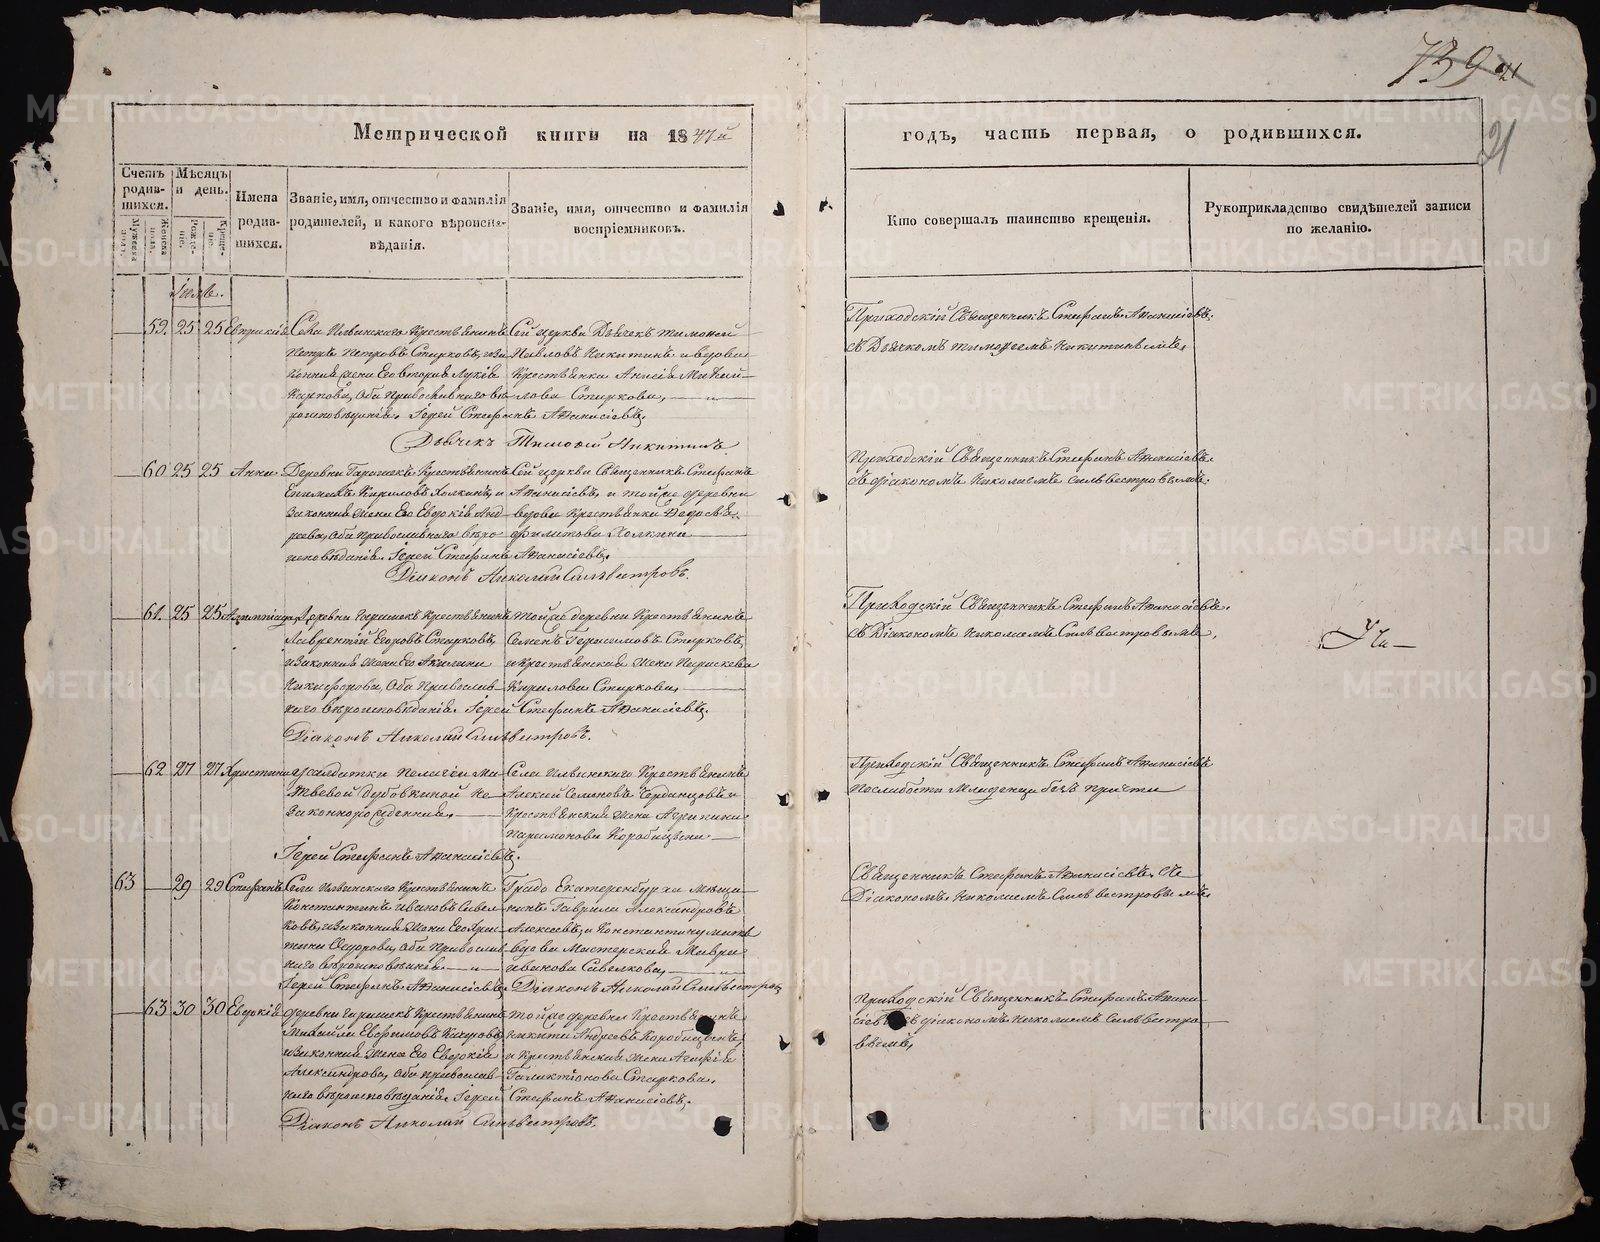 739
21
21
Метрической книги на 1847й
годъ, часть первая, о родившихся.
Счетъ родив-шихся.
Мужеска полъ.
Женска полъ.
Мѣсяцъ и день.
Рожде-нie.
Креще-нie.
Имена родив-шихся.
Званіе, имя, отчество и фамилія родителей, и какого вѣроиспо-вѣданія.
Званіе, имя, отчество и фамилія воспріемниковъ.
Кто совершалъ таинство крещенія.
Рукоприкладство свидѣтелей записи по желанію.
59. 25 25 Евпраксія
Села Ильинскаго Крестьянинъ
Петръ Петровъ Старковъ, и за
конная жена Его вторая Лукія
Карпова, оба Православнаго вѣ
роисповѣданія. Іерей Стефанъ Афанасіевъ,
Дьячекъ Тимофей Никитинъ.
Сей церкви Дьячекъ Тимофей
Павловъ Никитинъ и вдова
Крестьянка Анисія Михай
лова Старкова,
Приходскій Священникъ Стефанъ Афанасіевъ.
съ Дьячкомъ Тимофеемъ Никитинымъ.
60 25 25 Анна
Деревни Гаришекъ Крестьянинъ
Кириловъ Холкинъ, и
законная жена Его Евдокія Анд
реева, оба Православнаго вѣро
исповѣданія. Іерей Стефанъ Афанасіевъ,
Діаконъ Николай Сильвестровъ.
Сей церкви Священникъ Стефанъ
Афанасіевъ, и тойже деревни
вдова Крестьянка
Филатова Холкина
Приходскій Священникъ Стефанъ Афанасіевъ.
съ Діакономъ Николаемъ Сильвестровымъ.
61. 25 25
Деревни Гаришекъ Крестьянинъ
Лаврентій Егоровъ Старковъ,
и законная жена Его Акилина
Никифорова, оба Православ
наго вѣроисповѣданія. Іерей Стефанъ Афанасіевъ,
Діаконъ Николай Сильвестровъ.
Тойже деревни Крестьянинъ
Семенъ Герасимовъ Старковъ,
и Крестьянская жена Параскева
Кирилова Старкова,
Приходскій Священникъ Стефанъ Афанасіевъ.
съ Діакономъ Николаемъ Сильвестровымъ,
62 27 27 Христина
Салдатки Пелагеи Ма
твевой Дубовкиной не
законнорожденная,
Іерей Стефанъ Афанасіевъ.
Села Ильинскаго Крестьянинъ
Алексей Семеновъ
Крестьянская жена
Парамонова Коробицына
Приходскій Священникъ Стефанъ Афанасіевъ
по слабости Младенца безъ причта
63 29 29 Стефанъ
Села Ильинскаго Крестьянинъ
Константинъ Ивановъ Савел
ковъ, и законная жена Его Хрис
тина Федорова, оба Православ
наго вѣроисповѣданія
Іерей Стефанъ Афанасіевъ, Діаконъ Николай Сильвестровъ
Градо Екатеренбурха Мѣща
нинъ Гаврила Александровъ
Алексѣевъ, и
вдова Мастерская Мавра
Иванова Савелкова,
Священникъ Стефанъ Афанасіевъ съ
Діакономъ Николаемъ Сильвестровымъ.
63 30 30 Евдокія
Деревни Гаришекъ Крестьянинъ
Михаилъ
и законная жена Его Евдокія
Александрова, оба Православ
наго вѣроисповѣданія. Іерей Стефанъ Афанасіевъ,
Діаконъ Николай Сильвестровъ.
Тойже деревни Крестьянинъ
Никита Андреевъ Коробицынъ
и Крестьянская жена Агафія
Галактіонова Старкова.
Приходскій Священникъ Стефанъ Афана
сіевъ съ Діакономъ Николаемъ Сильвестро
вымъ,
METRIKI.GASO-URAL.RU